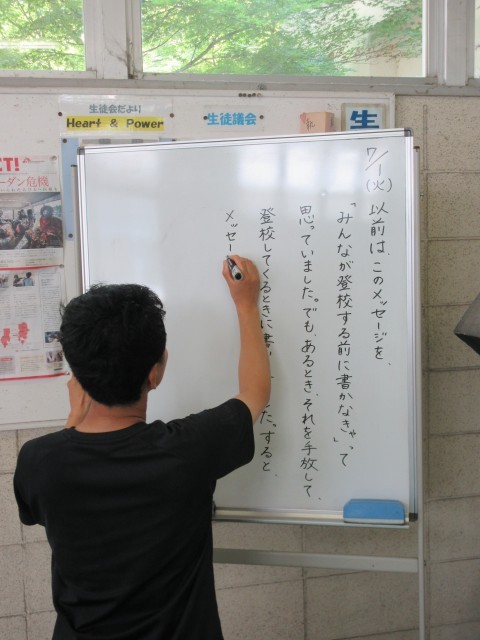 生徒会だより
Heart & Power
生徒議会
生
CT!
ーダン危機
7/1(火)
以前は、このメッセージを、
「みんなが登校する前に書かなきゃ」って
思っていました。でも、あるとき、それを手放して、
登校してくるときに書 た。すると、
メッセー